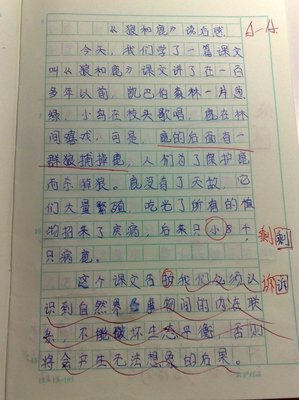 《狼和鹿》读后感
今天,我们学了一篇课文
叫《狼和鹿》课文讲了在一百
多年以前,凯巴伯森林一片葱
绿,小鸟在枝头歌唱,鹿在林
间嬉戏。可是,鹿的后面有一
群狼捕捉鹿,人们为了保护鹿
而杀掉狼。鹿没有了天敌,它
们大量繁殖,吃光了所有的植
物招来了疾病,后来只小8千
只病鹿。
剩 剩
这个课文告我们必须认
诉 诉
识到自然界生物间的内在联
系,不能破坏生态平衡,否则
将会产生无法想象的后果。